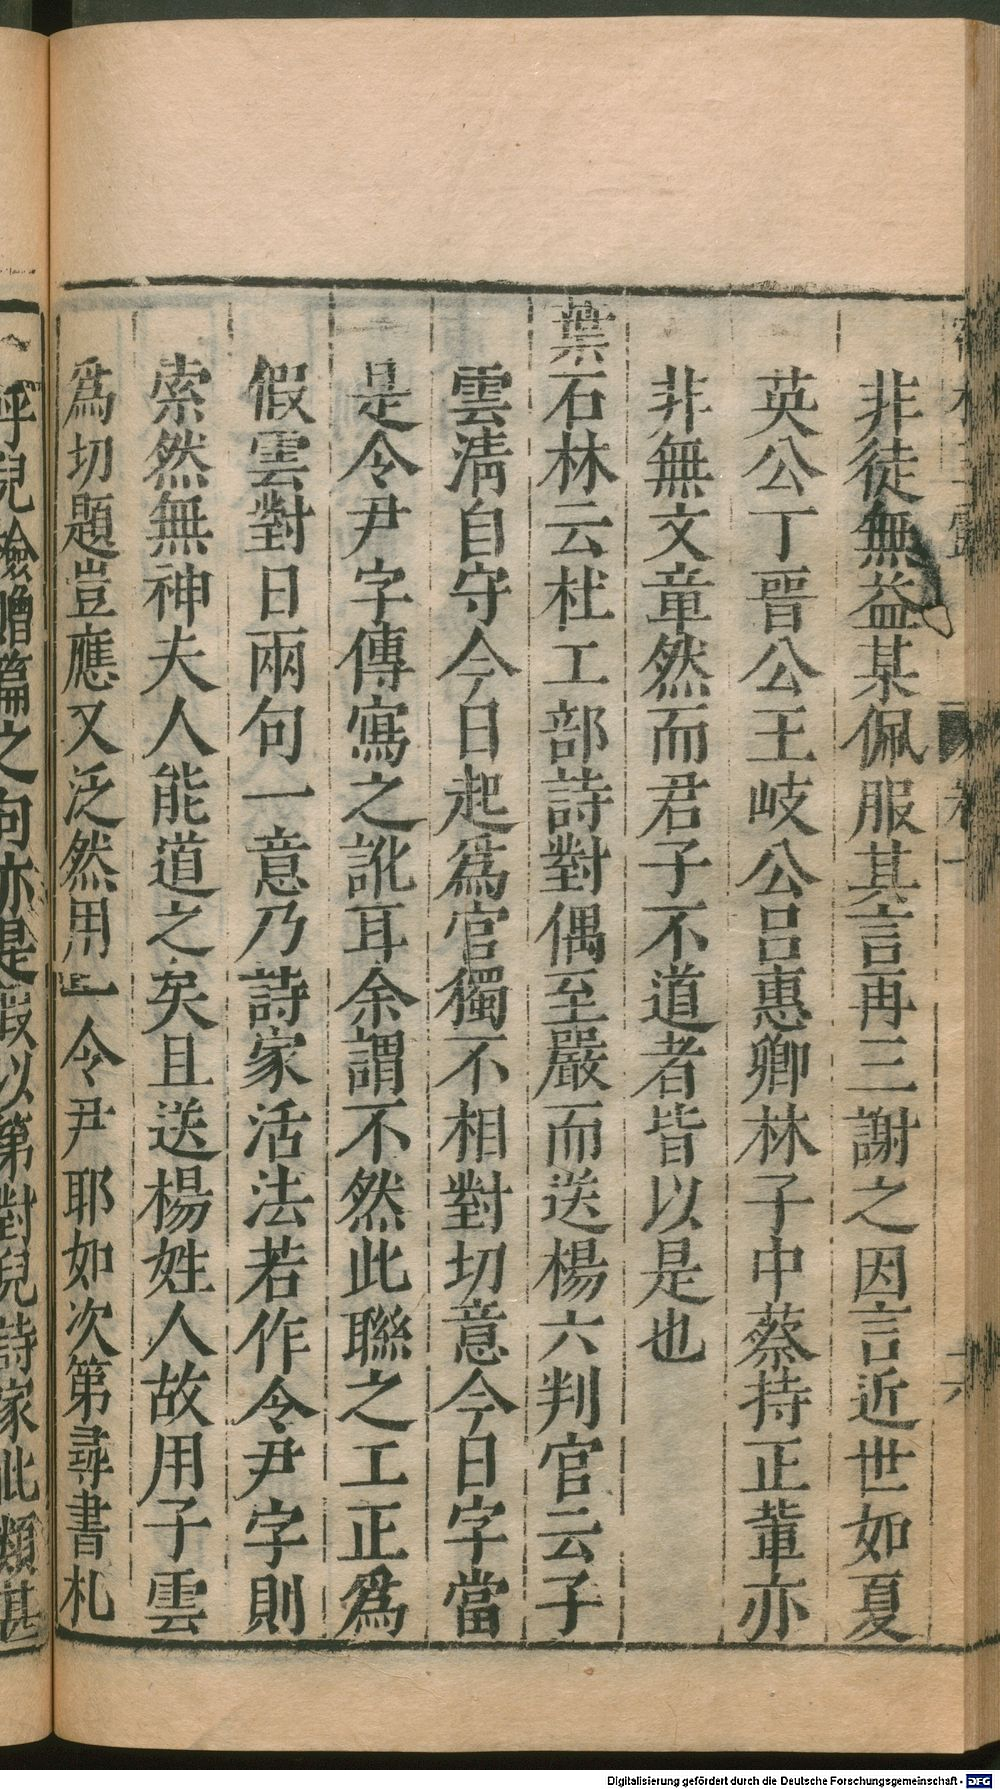 非徒無益某佩服其言再三謝之因言近世如夏
英公丁晋公王岐公呂惠卿林子中蔡持正輩亦
非無文章然而君子不道者皆以是也
葉石林云杜工部詩對偶至嚴而送楊六判官云子
雲清自守今日起爲官獨不相對切意今日字當
是令尹字傳寫之訛耳余謂不然此聯之工正爲
假雲對日兩句一意乃詩家活法若作令尹字則
索然無神夫人能道之矣且送楊姓人故用子雲
爲切題豈應又泛然用一令尹耶如次第尋書札
呼兒檢贈篇之句亦是假以第對兒詩家此類甚
Digitalisierung gefördert durch die Deutsche Forschungsgemeinschaft - DFG